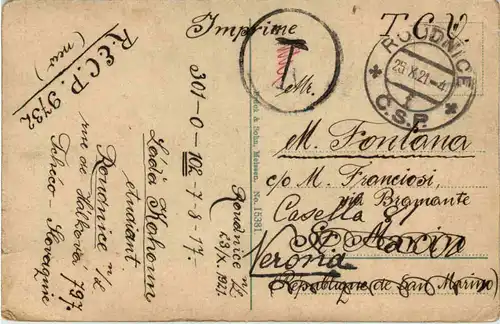 Imprimé
T.C.V.
T
Mr.
ROUDNICE
25.X.21-4
Č.S.P.
M. Fontana
c/o M. Franciosi,
via Bramante
Casella
St Marin
Verona
(République de San Marino)
R.E.C.P. 9732
(new)
301-0-102-7-8-17.
Láďa Kohoun
étudiant.
Roudnice n/L
rue de Hálkova 797.
Tchéco-Slovaquie
Roudnice n/L
23/X.1921.
& Sohn, Meissen. No. 15381.